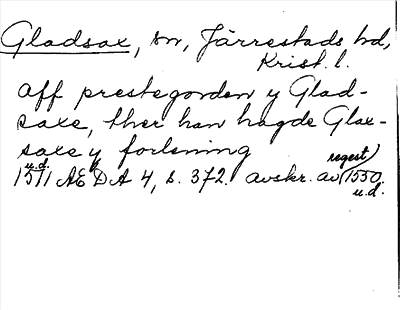 Gladsax, sn, Järrestads hd,
Krist. l.
aff prestegorden y Glad-
saxe, ther han hagde Glax-
saxe y forlening
u.d. regest)
1511 AEDA 4, s. 372. avskr. av (1550.
u.d.